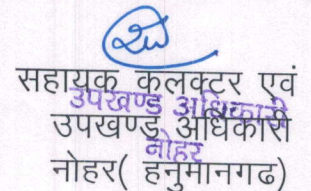 सहायक कलक्टर एवं
उपखण्ड अधिकारी
उपखण्ड अधिकारी
नोहर
नोहर( हनुमानगढ)